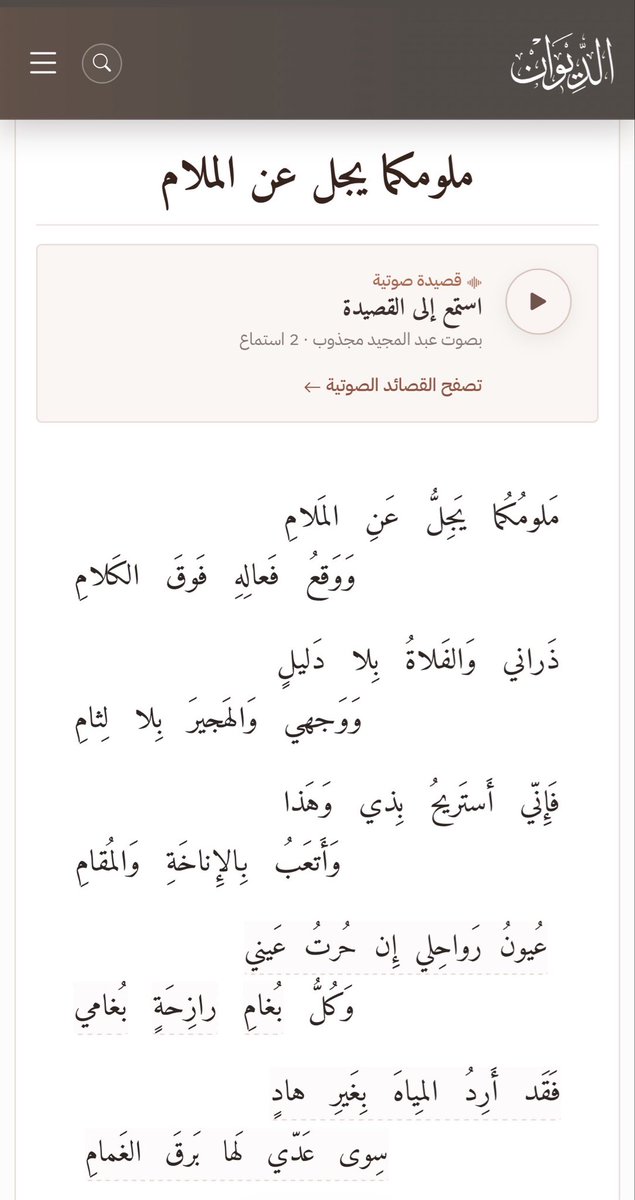 الدِّيوَانْ
ملومكما يجل عن الملام
قصيدة صوتية
استمع إلى القصيدة
بصوت عبد المجيد مجذوب · 2 استماع
تصفح القصائد الصوتية ←
مَلومُكُما يَجِلُّ عَنِ المَلامِ
وَوَقعُ فَعالِهِ فَوقَ الكَلامِ
ذَراني وَالفَلاةُ بِلا دَليلٍ
وَوَجهي وَالهَجيرَ بِلا لِثامِ
فَإِنّي أَستَريحُ بِذي وَهَذا
وَأَتعَبُ بِالإِناخَةِ وَالمُقامِ
عُيونُ رَواحِلي إِن حُرتُ عَيني
وَكُلُّ بُغامِ رازِحَةٍ بُغامي
فَقَد أَرِدُ المِياهَ بِغَيرِ هادٍ
سِوى عَدّي لَها بَرقَ الغَمامِ